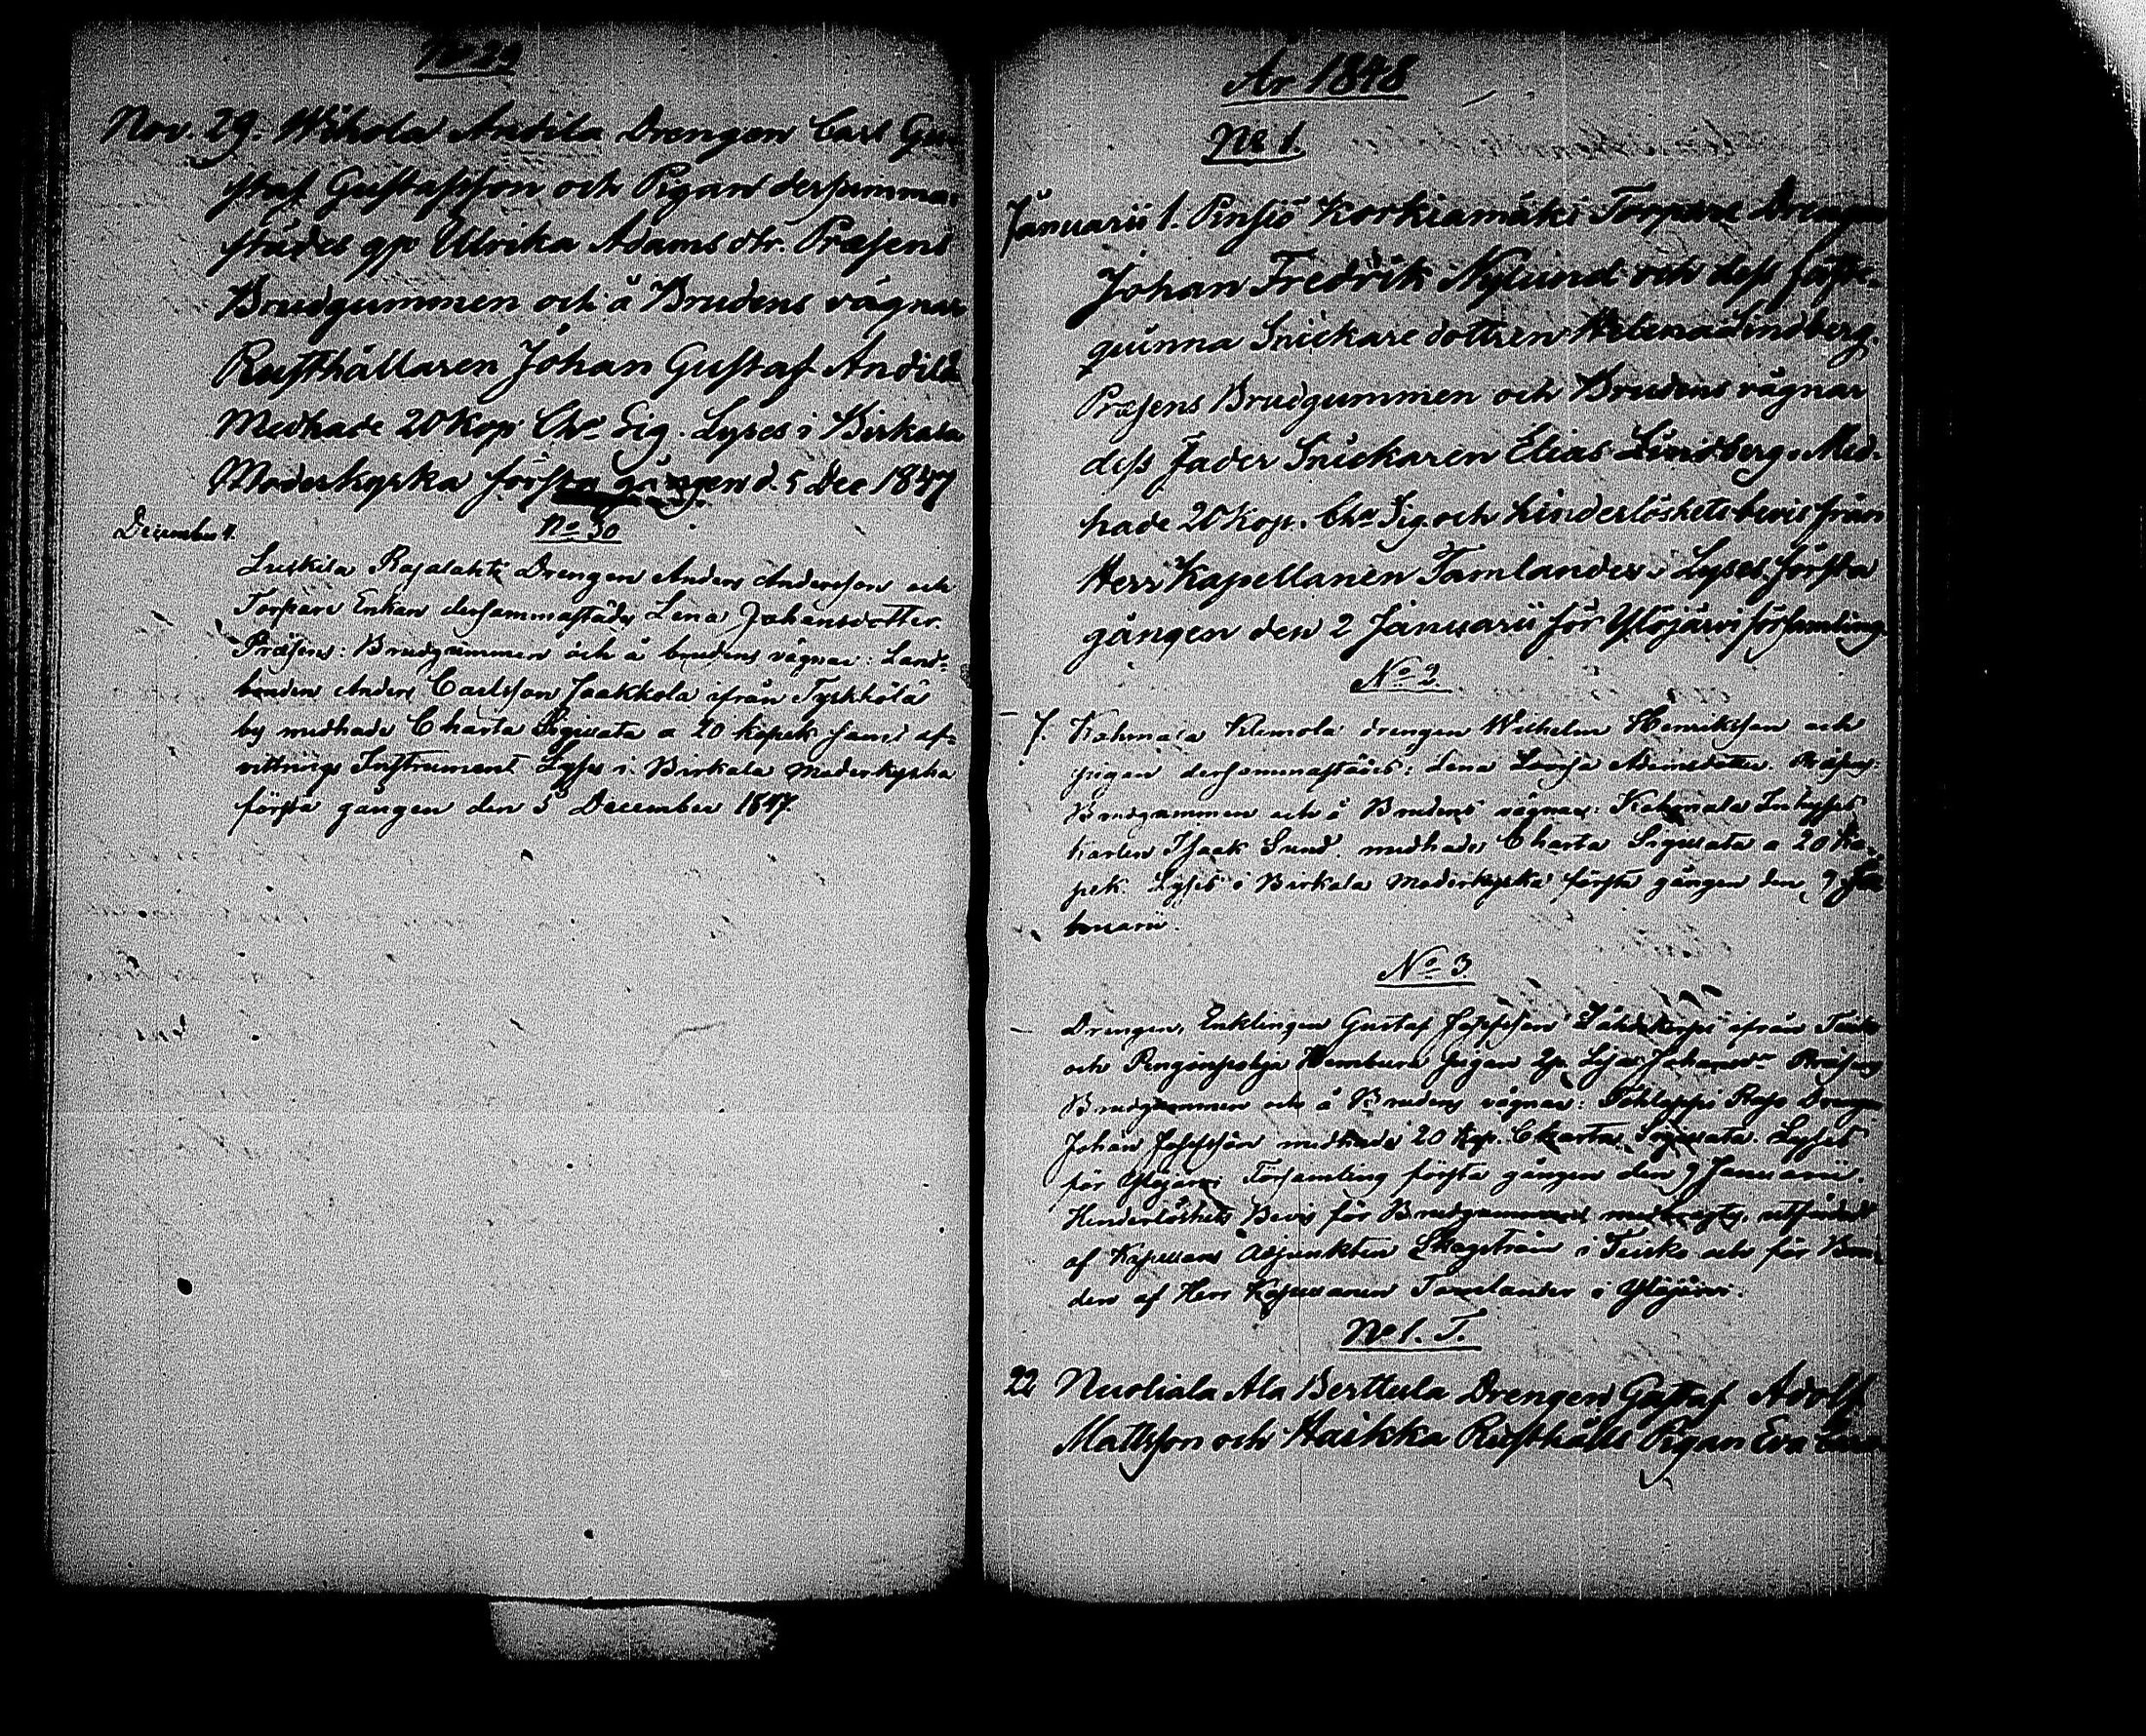 No 29
Nov. 29. Wihola Andila Drengen Carl Gu-
staf Gustafsson och Pigan dersamma-
städes gp Ulrika Adams dtr. Præsens
Brudgummen och å Brudens vägnar
Rusthållaren Johan Gustaf Andila
Medhade 20 Kop. Cha Sig. Lyses i Birkala
Moderkyrka första gången d. 5 Dec 1847
December 4. No 30
Drengen Anders Andersson och
Torpare Enkan dersammastädes Lena Johansdotter
Præsens: Brudgummen och å brudens vägnar: Land-
bonden Anders Carlsson Jaakkola ifrån Tyrkkölä
by medhade Charta Sigillata a 20 kopek samt af-
vittrings Instrument Lyses i Birkala Moderkyrka
första gången den 5 December 1847
År 1848
No 1.
Januarii 1. Pinsiö Korkiamäki Torpare Drengen
Johan Fredrik Nylund och dess fäste-
qvinna Snickare dottren Helena Lindberg.
Præsens Brudgummen och Brudens vägnar
dess Fader Snickaren Elias Lindberg. Med-
hade 20 Kop. Cha Sig. och hinderlöshets bevis från
Herr Kapellanen Tamlander. Lyses första
gången den 2 Januarii för Ylöjärvi församling.
No 2.
- 7. Klemola drengen Wilhelm Henriksson och
pigan dersammastädes: Lena Præsens:
Brudgummen och å Brudens vägnar:
karlen Isaak Sund. medhade Charta Sigillata a 20 Ko-
pek. Lyses i Birkala Moderkyrka första gången den 9 Ja-
nuarii.
No 3
- Drengen, Enklingen Gustaf ifrån Teisko
och pigan Præsens
Brudgummen och å Brudens vägnar: Drengen
Johan Josefsson medhade 20 Kop. Charta Sigillata. Lyses
för Ylöjärvi Församling första gången den 9 Januarii.
Hinderlöshets Bevis för Brudgummen
af Kapellans Adjunkten i Teisko och för Bru-
den af Herr Kapellanen Tamlander i Ylöjärvi.
No 1. T.
22 Nuoliala Ala Berttula Drengen Gustaf Adolf
Mattsson och Haikka Rusthålls Pigan Eva